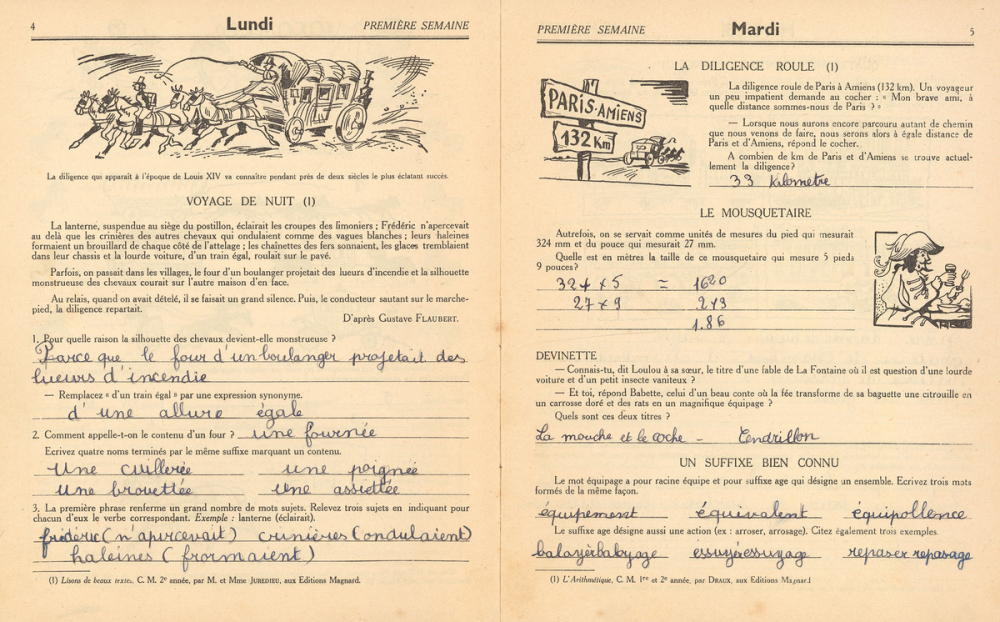 4 Lundi PREMIÈRE SEMAINE
La diligence qui apparaît à l'époque de Louis XIV va connaître pendant près de deux siècles le plus éclatant succès.
VOYAGE DE NUIT (1)
La lanterne, suspendue au siège du postillon, éclairait les croupes des limoniers ; Frédéric n'apercevait
au delà que les crinières des autres chevaux qui ondulaient comme des vagues blanches ; leurs haleines
formaient un brouillard de chaque côté de l'attelage ; les chaînettes des fers sonnaient, les glaces tremblaient
dans leur chassis et la lourde voiture, d'un train égal, roulait sur le pavé.
Parfois, on passait dans les villages, le four d'un boulanger projetait des lueurs d'incendie et la silhouette
monstrueuse des chevaux courait sur l'autre maison d'en face.
Au relais, quand on avait dételé, il se faisait un grand silence. Puis, le conducteur sautant sur le marche-
pied, la diligence repartait.
D'après Gustave FLAUBERT.
1. Pour quelle raison la silhouette des chevaux devient-elle monstrueuse ?
Parce que le four d'un boulanger projetait des
lueurs d'incendie
— Remplacez « d'un train égal » par une expression synonyme.
d'une allure égale
2. Comment appelle-t-on le contenu d'un four ? une fournée
Ecrivez quatre noms terminés par le même suffixe marquant un contenu.
Une cuillerée une poignée
Une brouettée une assiettée
3. La première phrase renferme un grand nombre de mots sujets. Relevez trois sujets en indiquant pour
chacun d'eux le verbe correspondant. Exemple : lanterne (éclairait).
frédéric (n'apircevait) crunières (ondulaient)
haleines (frormaient)
(1) Lisons de beaux textes, C. M. 2e année, par M. et Mme JUREDIEU, aux Editions Magnard.
PREMIÈRE SEMAINE Mardi 5
LA DILIGENCE ROULE (1)
PARIS-AMIENS
132 Km
La diligence roule de Paris à Amiens (132 km). Un voyageur
un peu impatient demande au cocher : « Mon brave ami, à
quelle distance sommes-nous de Paris ? »
— Lorsque nous aurons encore parcouru autant de chemin
que nous venons de faire, nous serons alors à égale distance de
Paris et d'Amiens, répond le cocher.
A combien de km de Paris et d'Amiens se trouve actuel-
lement la diligence?
33 Kilometre
LE MOUSQUETAIRE
Autrefois, on se servait comme unités de mesures du pied qui mesurait
324 mm et du pouce qui mesurait 27 mm.
Quelle est en mètres la taille de ce mousquetaire qui mesure 5 pieds
9 pouces?
324 × 5 = 1620
27 × 9 243
1.86
DEVINETTE
— Connais-tu, dit Loulou à sa sœur, le titre d'une fable de La Fontaine où il est question d'une lourde
voiture et d'un petit insecte vaniteux ?
— Et toi, répond Babette, celui d'un beau conte où la fée transforme de sa baguette une citrouille en
un carrosse doré et des rats en un magnifique équipage ?
Quels sont ces deux titres ?
La mouche et le coche - Cendrillon
UN SUFFIXE BIEN CONNU
Le mot équipage a pour racine équipe et pour suffixe age qui désigne un ensemble. Ecrivez trois mots
formés de la même façon.
équipement équivalent équipollence
Le suffixe age désigne aussi une action (ex : arroser, arrosage). Citez également trois exemples.
balayerbalyage essuyeressuyage repaser repasage
(1) L'Arithmétique, C. M. 1re et 2e année, par DRAUX, aux Editions Magnard